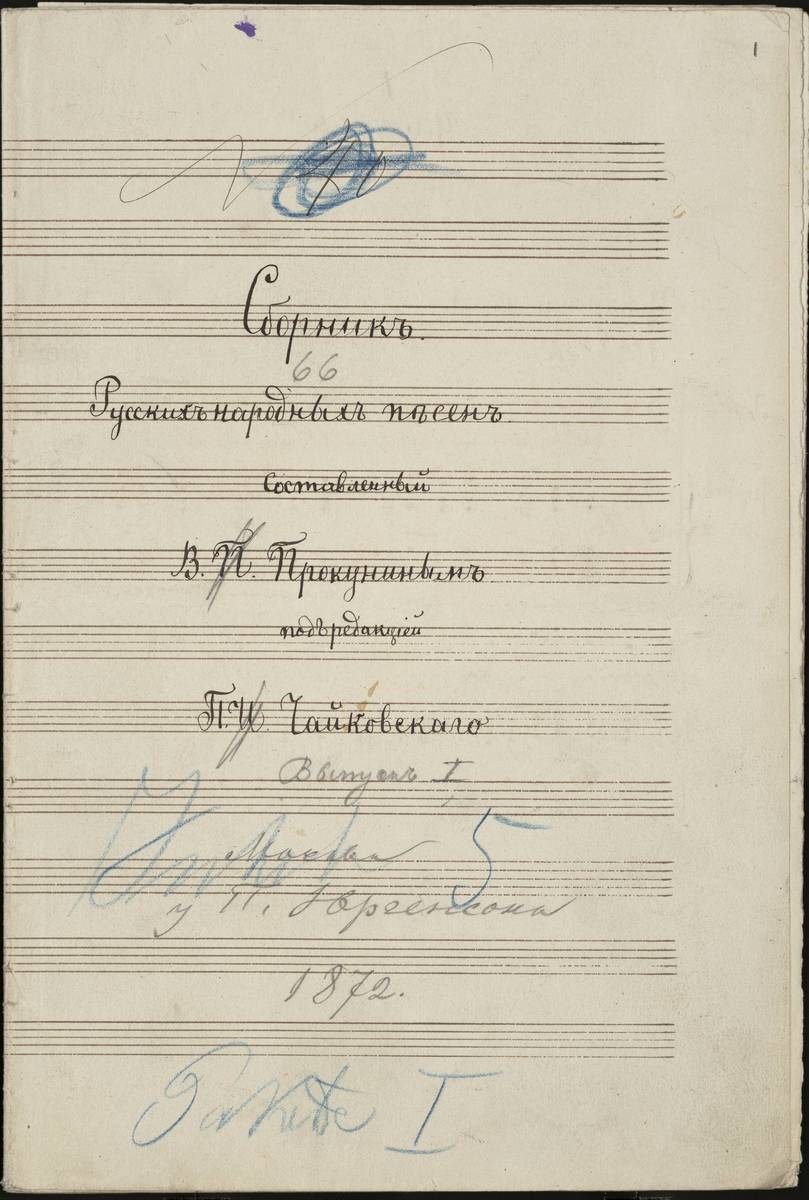 1
Сборникъ.
66
Русскихъ народныхъ пѣсенъ
составленный
В. П. Прокунинымъ
подъ редакціей
П. И. Чайковскаго
Выпускъ I
Москва
5
у П. Юргенсона
1872.
I